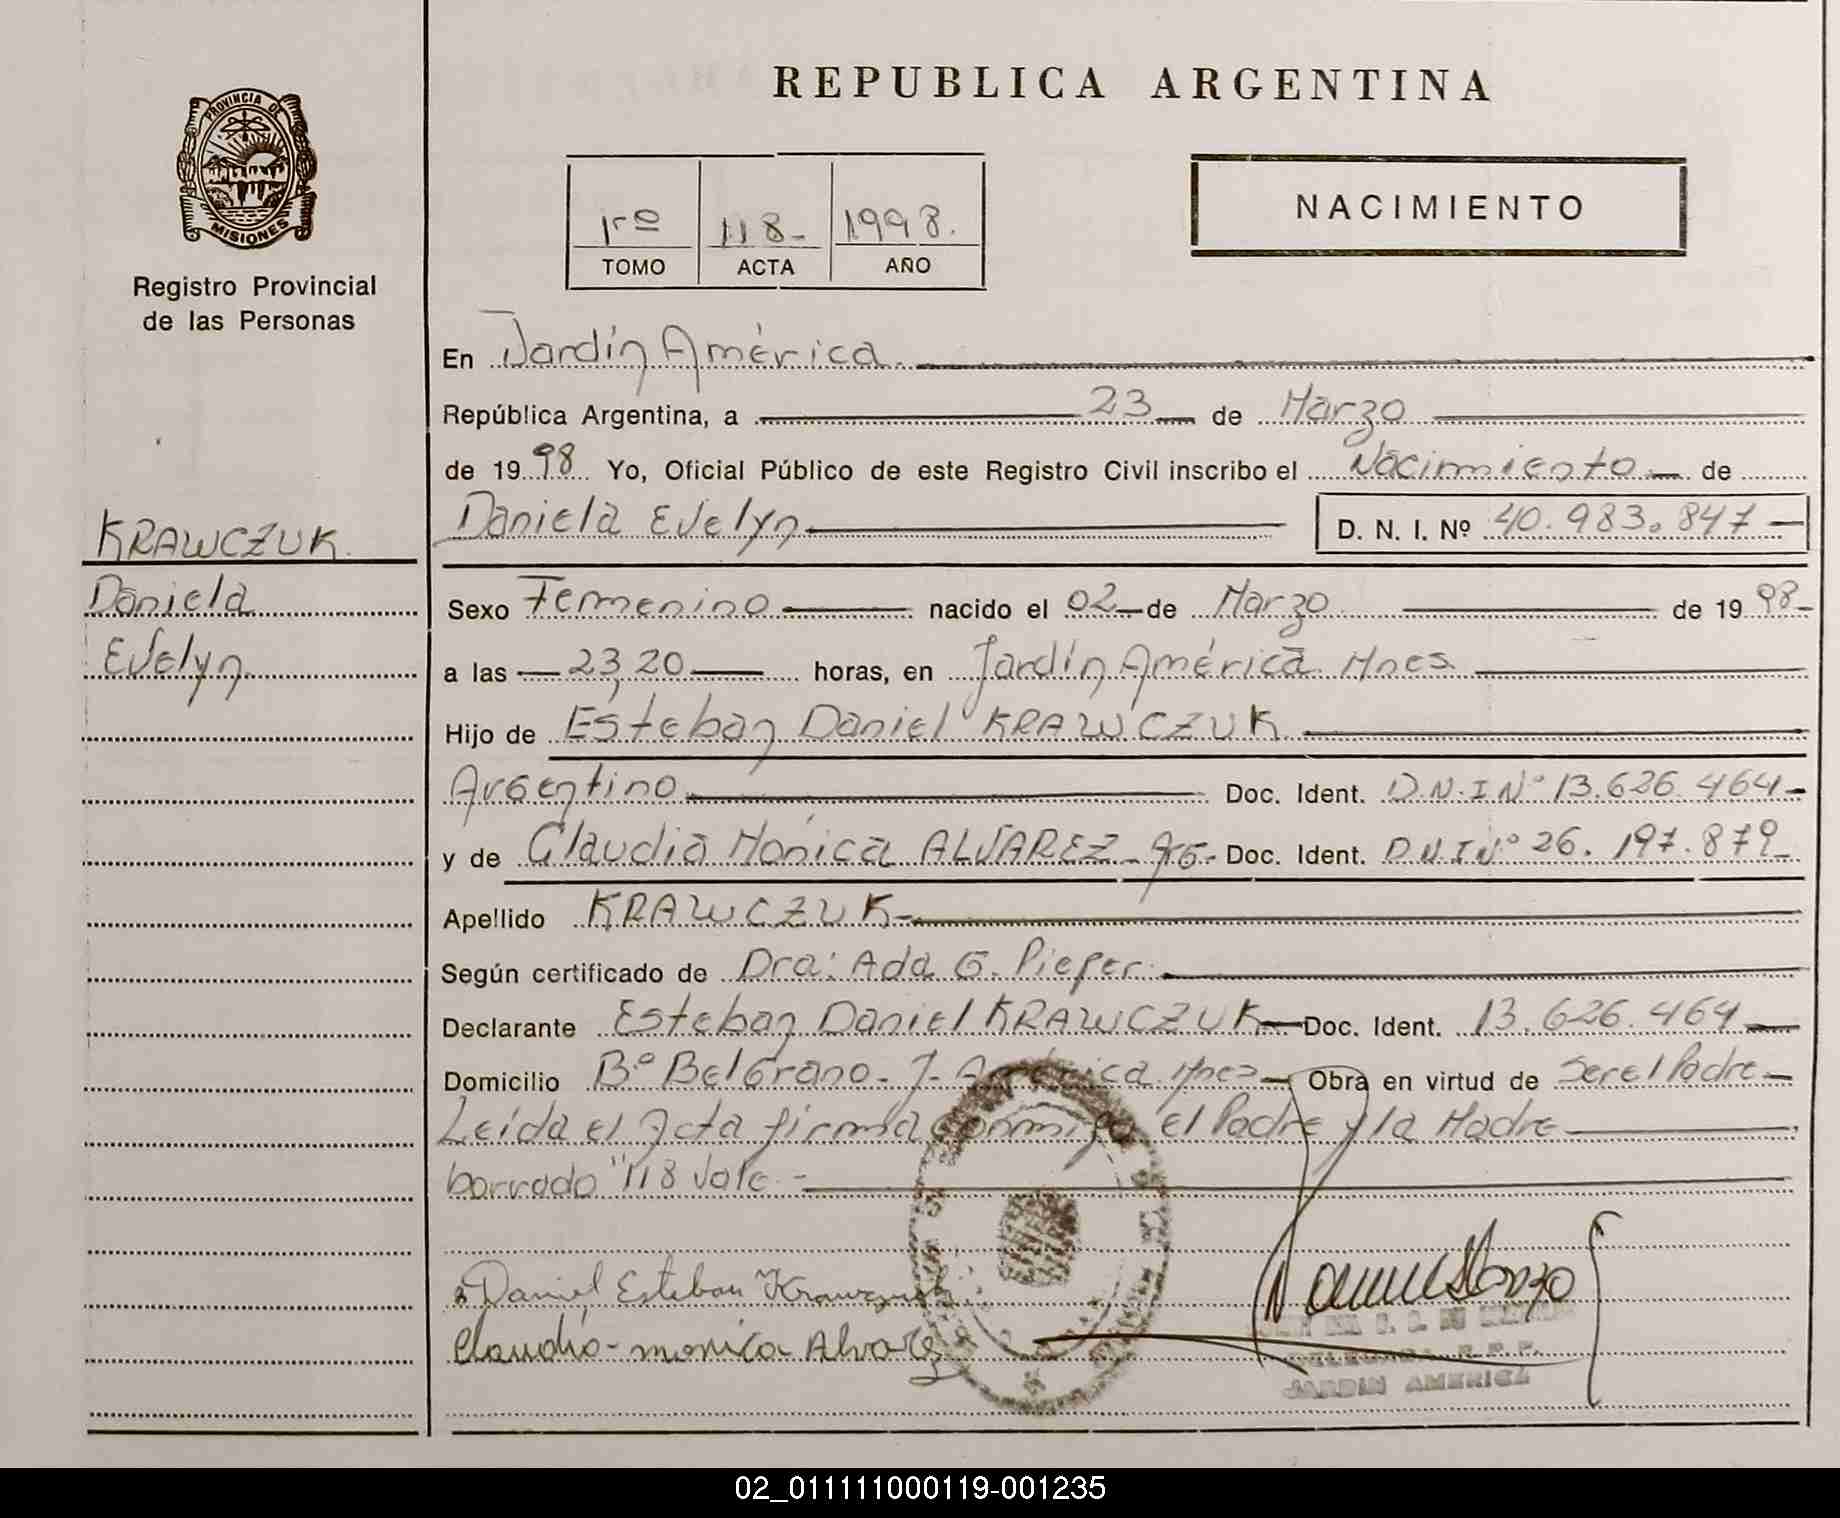 PROVINCIA DE
MISIONES
Registro Provincial
de las Personas
KRAWCZUK
Daniela
Evelyn
REPUBLICA ARGENTINA
1rº 118- 1998.
TOMO ACTA AÑO
NACIMIENTO
En Jardín América.
República Argentina, a 23 de Marzo
de 1998 Yo, Oficial Público de este Registro Civil inscribo el Nacimiento de
Daniela Evelyn D. N. I. Nº 40.983.847
Sexo Femenino nacido el 02 de Marzo de 1998
a las 23,20 horas, en Jardín América Mnes.
Hijo de Esteban Daniel KRAWCZUK
Argentino Doc. Ident. D.N.I Nº 13.626.464
y de Claudia Mónica ALVAREZ - Arg. Doc. Ident. D.N.I Nº 26.197.879
Apellido KRAWCZUK
Según certificado de Dra: Ada G. Pieper.
Declarante Esteban Daniel KRAWCZUK Doc. Ident. 13.626.464
Domicilio Bº Belgrano - J. América Mnes Obra en virtud de Ser el Padre
Leída el Acta firma conmigo el Padre y la Madre
borrado "118 Vale.-
Daniel Esteban Krawczuk
Claudia-monica Alvarez
JARDIN AMERICA
02_011111000119-001235